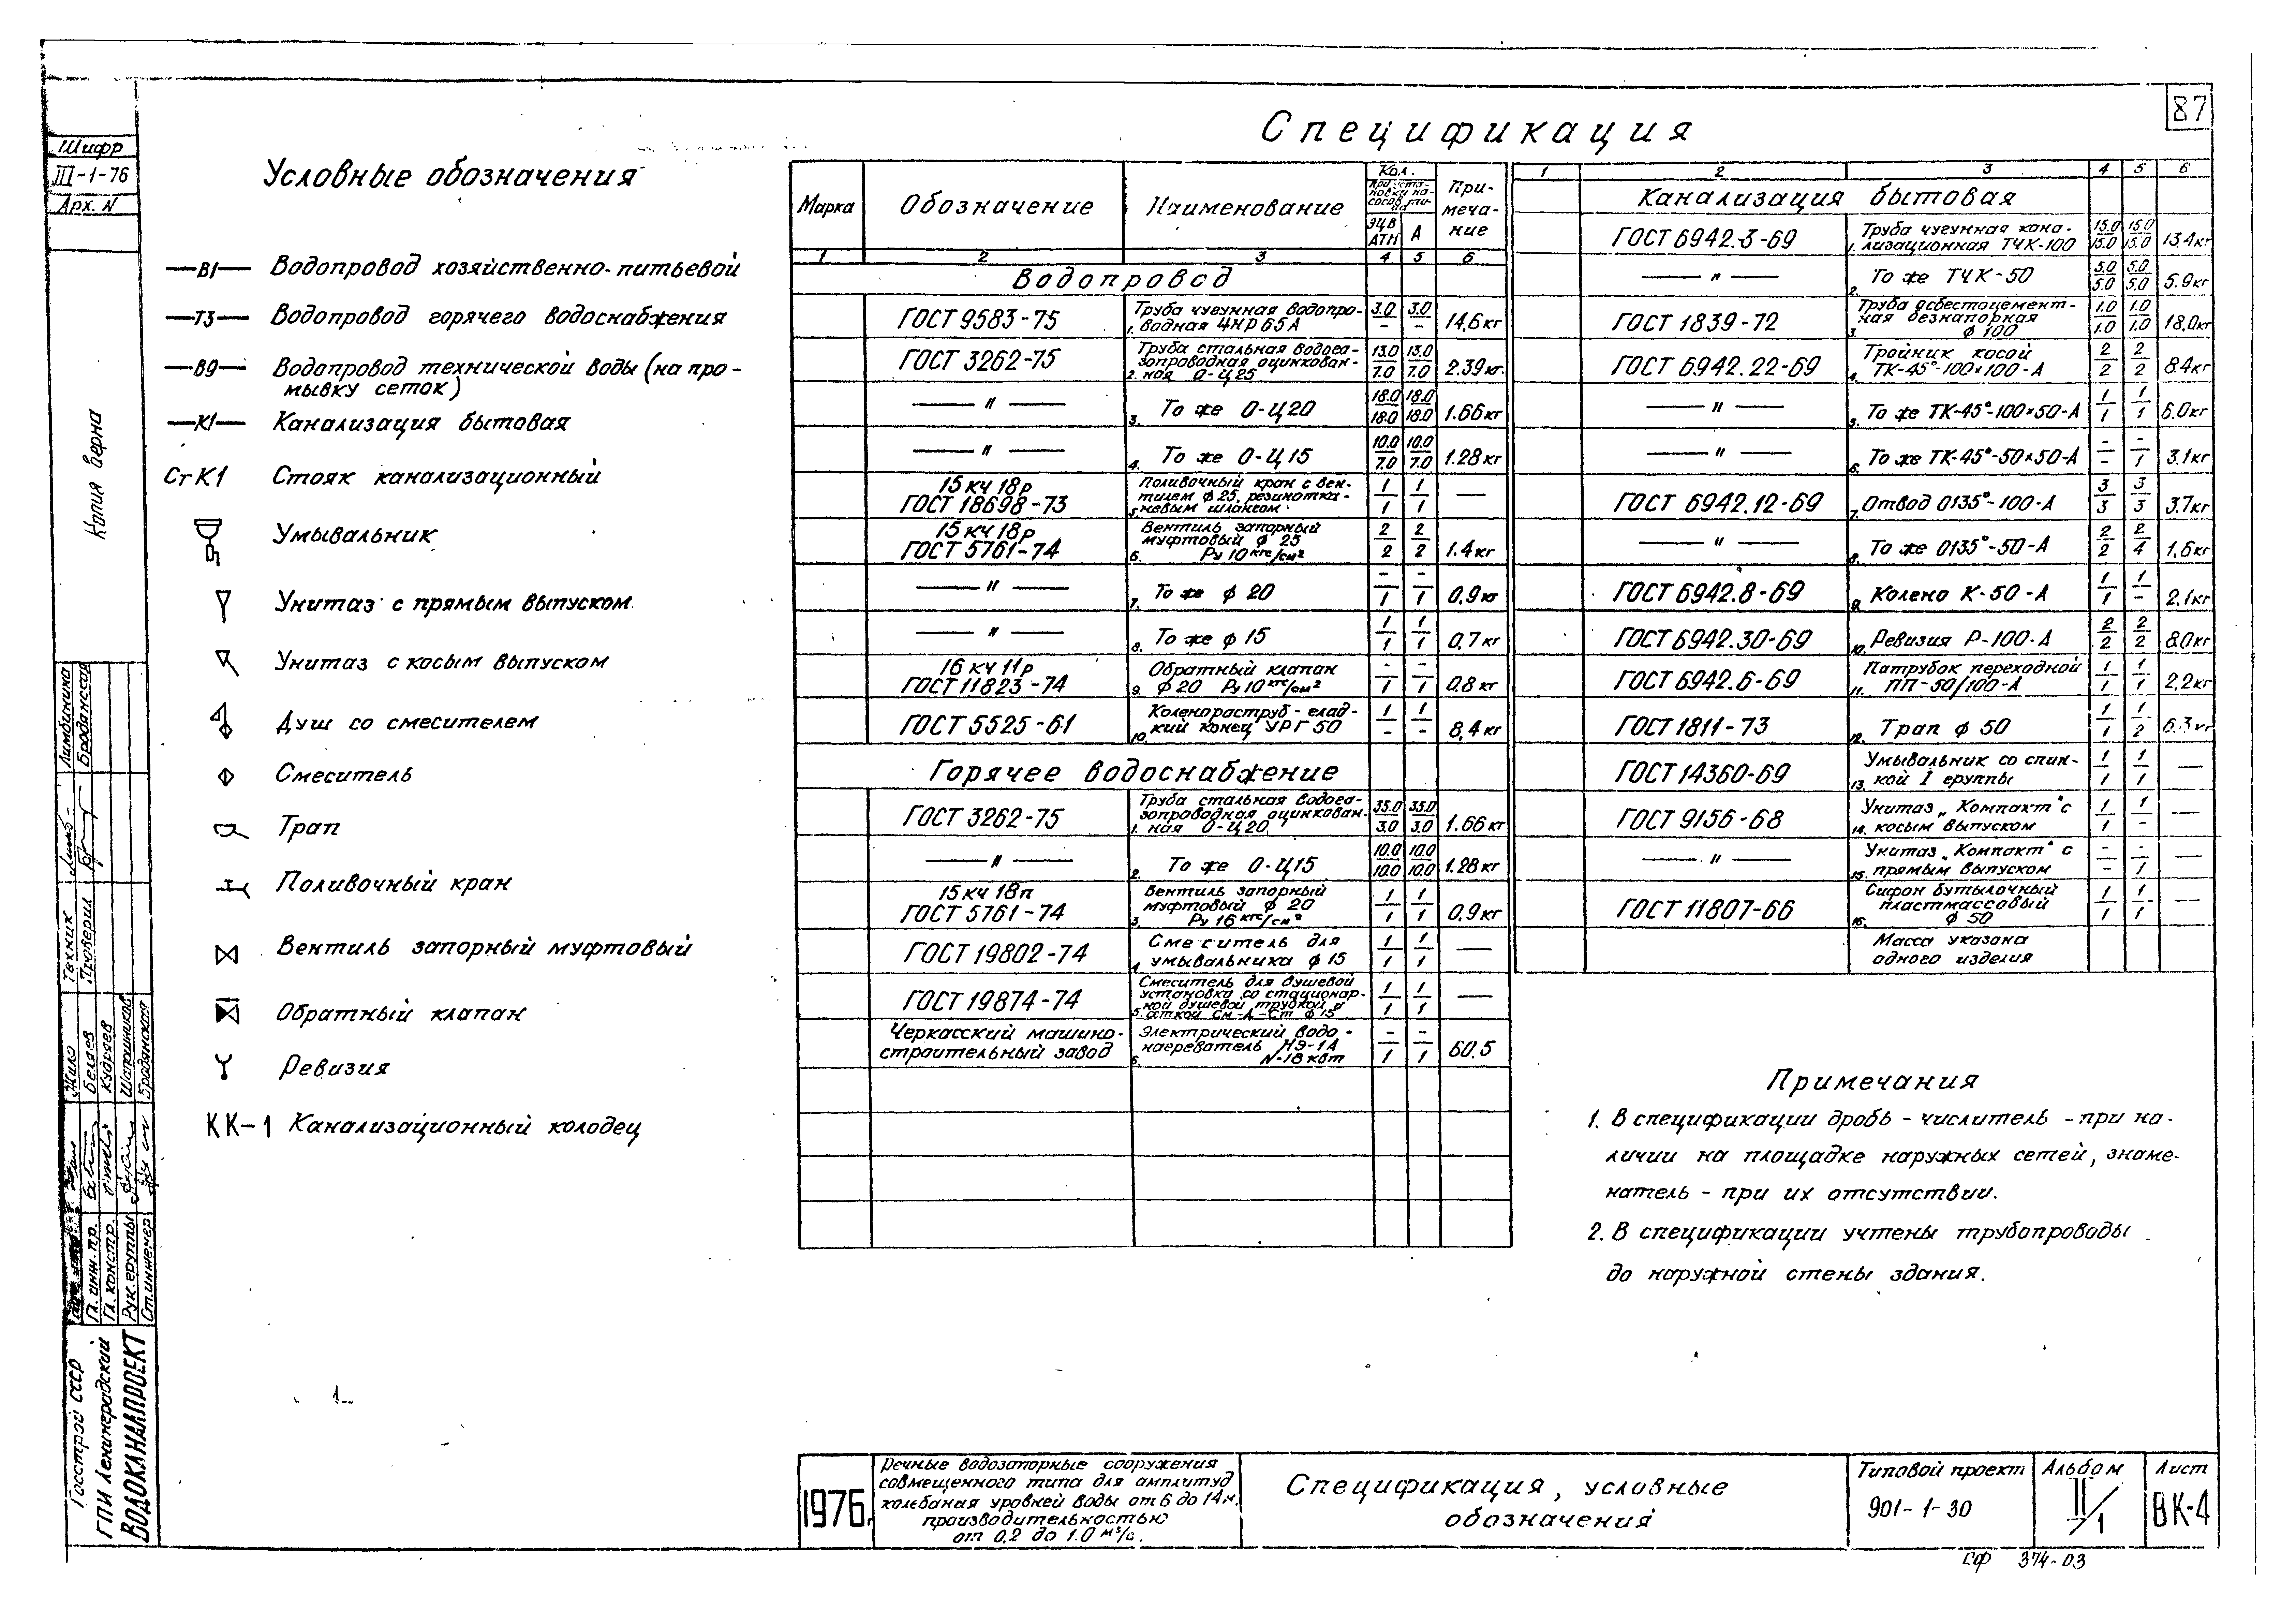 87
Шифр
III-1-76
Арх. N
Копия верна
Условные обозначения
—В1— Водопровод хозяйственно-питьевой
—Т3— Водопровод горячего водоснабжения
—В9— Водопровод технической воды (на про-
мывку сеток)
—К1— Канализация бытовая
СтК1 Стояк канализационный
Умывальник
Унитаз с прямым выпуском
Унитаз с косым выпуском
Душ со смесителем
Смеситель
Трап
Поливочный кран
Вентиль запорный муфтовый
Обратный клапан
Ревизия
КК-1 Канализационный колодец
Спецификация
Марка Обозначение Наименование Кол. При-
меча-
ние
при уста-
новки на-
сосов ти-
па
ЭЦВ
АТН А
1 2 3 4 5 6
Водопровод
ГОСТ 9583-75 1. Труба чугунная водопро-
водная ЧНР 65А 3.0/- 3.0/- 14,6кг
ГОСТ 3262-75 2. Труба стальная водога-
зопроводная оцинкован-
ная О-Ц25 13.0/7.0 13.0/7.0 2.39кг.
—"— 3. То же О-Ц20 18.0/18.0 18.0/18.0 1.66кг
—"— 4. То же О-Ц15 10.0/7.0 10.0/7.0 1.28кг
15кч18р
ГОСТ 18698-73 5. Поливочный кран с вен-
тилем ф 25, резинотка-
невым шлангом 1/1 1/1 —
15кч18р
ГОСТ 5761-74 6. Вентиль запорный
муфтовый ф 25
Ру 10 кгс/см² 2/2 2/2 1.4кг
—"— 7. То же ф 20 -/1 -/1 0,9кг
—"— 8. То же ф 15 1/1 1/1 0,7кг
16кч11р
ГОСТ 11823-74 9. Обратный клапан
ф 20 Ру 10 кгс/см² -/1 -/1 0,8кг
ГОСТ 5525-61 10. Коленораструб-глад-
кий конец УРГ 50 1/- 1/- 8,4кг
Горячее водоснабжение
ГОСТ 3262-75 1. Труба стальная водога-
зопроводная оцинкован-
ная О-Ц20 35.0/3.0 35.0/3.0 1.66кг
—"— 2. То же О-Ц15 10.0/10.0 10.0/10.0 1.28кг
15кч18п
ГОСТ 5761-74 3. Вентиль запорный
муфтовый ф 20
Ру 16 кгс/см² 1/1 1/1 0,9кг
ГОСТ 19802-74 4. Смеситель для
умывальника ф 15 1/1 1/1 —
ГОСТ 19874-74 5. Смеситель для душевой
установка со стационар-
ной душевой трубкой и
сеткой См-Д-Ст ф 15 1/1 1/1 —
Черкасский машино-
строительный завод 6. Электрический водо-
нагреватель НЭ-1А
N-18 квт -/1 -/1 60.5
1 2 3 4 5 6
Канализация бытовая
ГОСТ 6942.3-69 1. Труба чугунная кана-
лизационная ТЧК-100 15.0/15.0 15.0/15.0 13,4кг
—"— 2. То же ТЧК-50 5.0/5.0 5.0/5.0 5.9кг
ГОСТ 1839-72 3. Труба асбестоцемент-
ная безнапорная
ф 100 1.0/1.0 1.0/1.0 18.0кг
ГОСТ 6942.22-69 4. Тройник косой
ТК-45°-100×100-А 2/2 2/2 8.4кг
—"— 5. То же ТК-45°-100×50-А 1/1 1/1 6.0кг
—"— 6. То же ТК-45°-50×50-А -/- -/1 3.1кг
ГОСТ 6942.12-69 7. Отвод О135°-100-А 3/3 3/3 3.7кг
—"— 8. То же О135°-50-А 2/2 2/4 1,6кг
ГОСТ 6942.8-69 9. Колено К-50-А 1/1 1/- 2.1кг
ГОСТ 6942.30-69 10. Ревизия Р-100-А 2/2 2/2 8.0кг
ГОСТ 6942.6-69 11. Патрубок переходной
ПП-50/100-А 1/1 1/1 2,2кг
ГОСТ 1811-73 12. Трап ф 50 1/1 1/2 6.3кг
ГОСТ 14360-69 13. Умывальник со спин-
кой I группы 1/1 1/1 —
ГОСТ 9156-68 14. Унитаз „Компакт" с
косым выпуском 1/1 1/- —
—"— 15. Унитаз „Компакт" с
прямым выпуском -/- -/1 —
ГОСТ 11807-66 16. Сифон бутылочный
пластмассовый
ф 50 1/1 1/1 —
Масса указана
одного изделия
Примечания
1. В спецификации дробь - числитель - при на-
личии на площадке наружных сетей, знаме-
натель - при их отсутствии.
2. В спецификации учтены трубопроводы
до наружной стены здания.
Техник
Лимбинина
Проверил
Бродянская
Жило
Гл. инж. пр.
Беляев
Гл. констр.
Кудряев
Рук. группы
Шапошников
Ст. инженер
Бродянская
Госстрой СССР
ГПИ Ленинградский
ВОДОКАНАЛПРОЕКТ
1976г.
Речные водозаборные сооружения
совмещенного типа для амплитуд
колебания уровней воды от 6 до 14 м,
производительностью
от 0.2 до 1.0 м³/с.
Спецификация, условные
обозначения
Типовой проект
901-1-30
Альбом
II/1
Лист
ВК-4
СФ 374-03